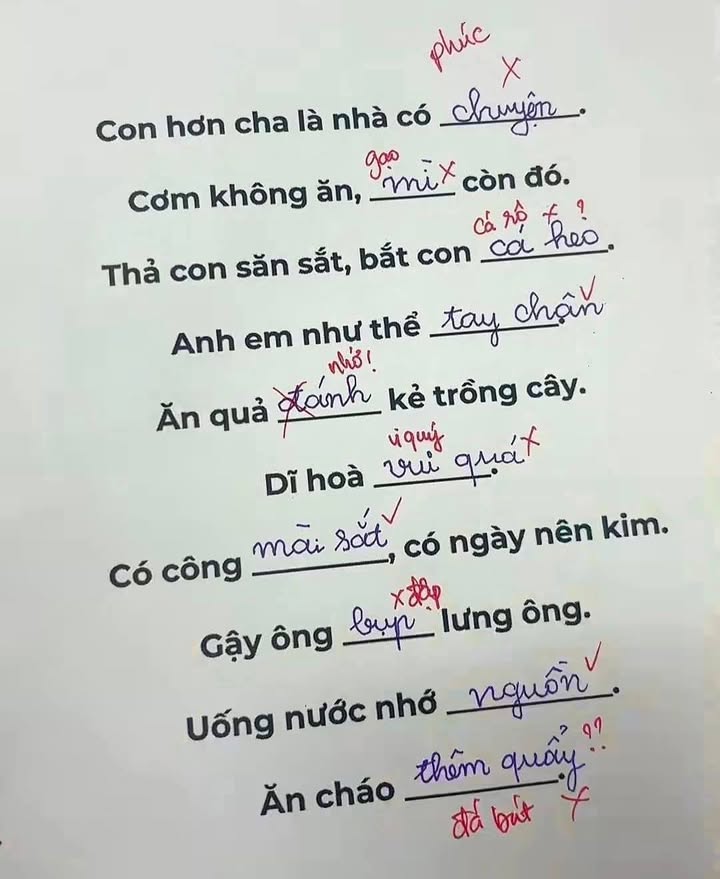 phúc
x
Con hơn cha là nhà có chuyện.
gạo
Cơm không ăn, mì x còn đó.
cá rô x ?
Thả con săn sắt, bắt con cá heo.
Anh em như thể tay chận
nhớ!
Ăn quả đánh kẻ trồng cây.
vi quý
Dĩ hoà vui quá x.
Có công mài sắt, có ngày nên kim.
x đập
Gậy ông bụp lưng ông.
Uống nước nhớ nguồn.
Ăn cháo thêm quẩy. ??
đá bát x